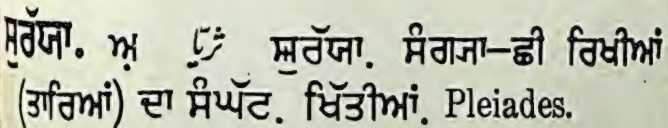 ਸੁਰੱਯਾ. ਅ਼ ਸੁਰੱਯਾ. ਸੰਗ੍ਯਾ—ਛੀ ਰਿਖੀਆਂ
(ਤਾਰਿਆਂ) ਦਾ ਸੰਘੱਟ. ਖਿੱਤੀਆਂ. Pleiades.